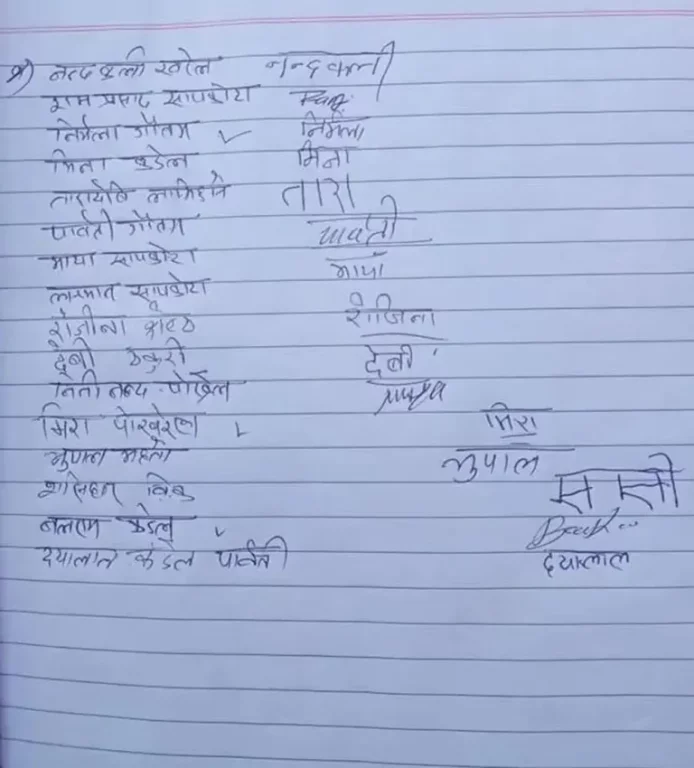 नन्दकली खरेल नन्दकली
राम प्रसाद सापकोटा Ram
निर्मला गौतम निर्मला
मिना कडेल मिना
तारादेवि लामिछाने तारा
पार्वती गौतम पार्वती
माया सापकोटा माया
सापकोटा
रोजीना रोजिना
देबी ठकुरी देबी
पोखरेल
मिरा पोखरेल मिरा
भुपाल महतो भुपाल
वि.क
बलराम कडेल
दयालाल कंडेल पार्वती दयालाल